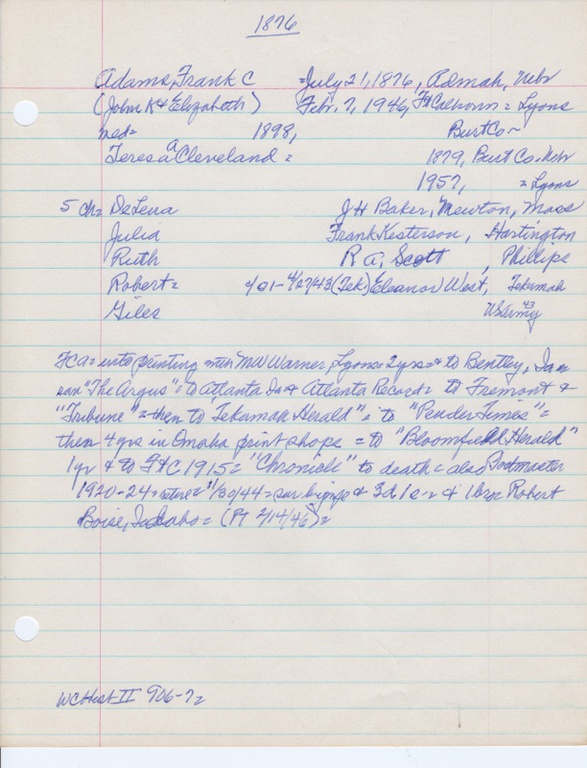 1876
Adams, Frank C = July 21, 1876, Admah, Nebr
(John K & Elizabeth) Feb. 7, 1946, Ft Calhoun = Lyons
med = 1898, Burt Co ~
Teresa A Cleveland = 1879, Burt Co. Nebr
1957, = Lyons
5 ch = DeLena J H Baker, Newton, Mass
Julia Frank Kesterson, Hartington
Ruth R. A. Scott, Phillips
Robert = 4/27/43 (Tek) Eleanor West, Tekamah
Giles US Army 43
FCA = into printing MW Warner, Lyons = 2 yrs = & to Bentley, Ia =
ran "The Argus" = to Atlanta Ia & Atlanta Record = to Fremont &
"Tribune" = then to Tekamah Herald" = to "Pender Times" =
then 4 yrs in Omaha print shops = to "Bloomfield Herald"
1 yr & to Ft C 1915 = "Chronicle" to death = also Postmaster
1920-24 = 11/30/44 = & 3d 1 c & 1 bro = Robert
Boise, Idaho = (PT 2/14/46) =
WC Hist II 906-7 =